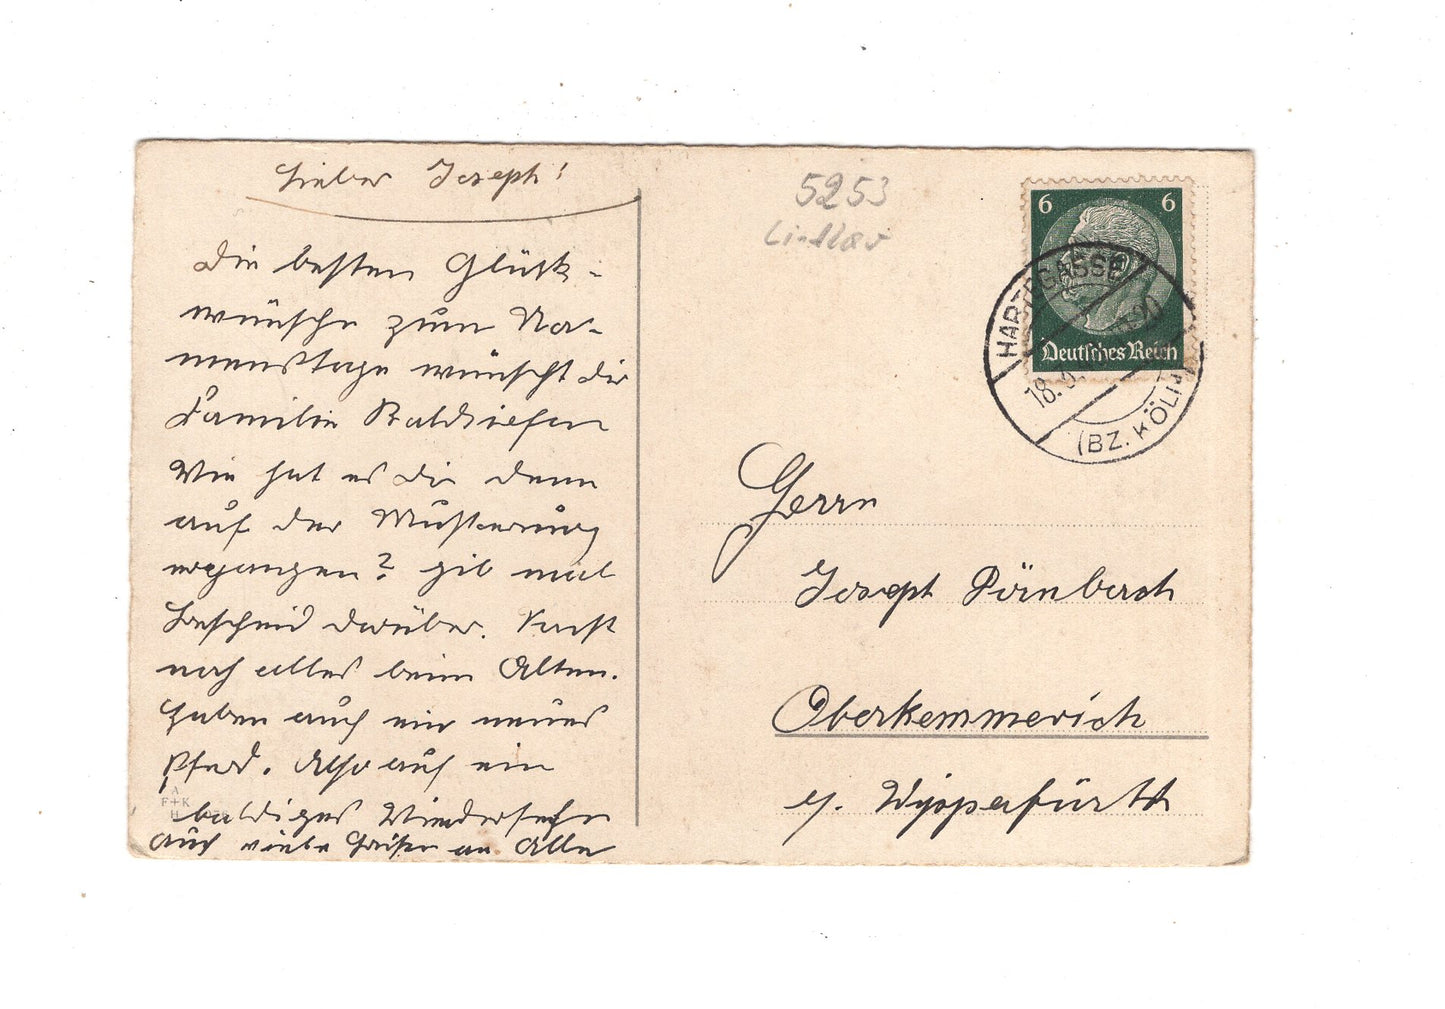 Lieber Joseph!
Die besten Glück-
wünsche zum Na-
menstage wünscht dir
Familie
Wie hat es dir denn
auf der Musterung
ergangen? gib mal
Bescheid darüber. Sonst
noch alles beim Alten.
Haben auch ein neues
Pferd. Also auf ein
baldiges Wiedersehn
auch viele Grüße an Alle
A
F+K
H
5253
Lindlar
6 6
Deutsches Reich
HARTEGASSE
18.3.
(BZ. KÖLN)
Herrn
Joseph Börnbach
Oberkemmerich
b/. Wipperfürth